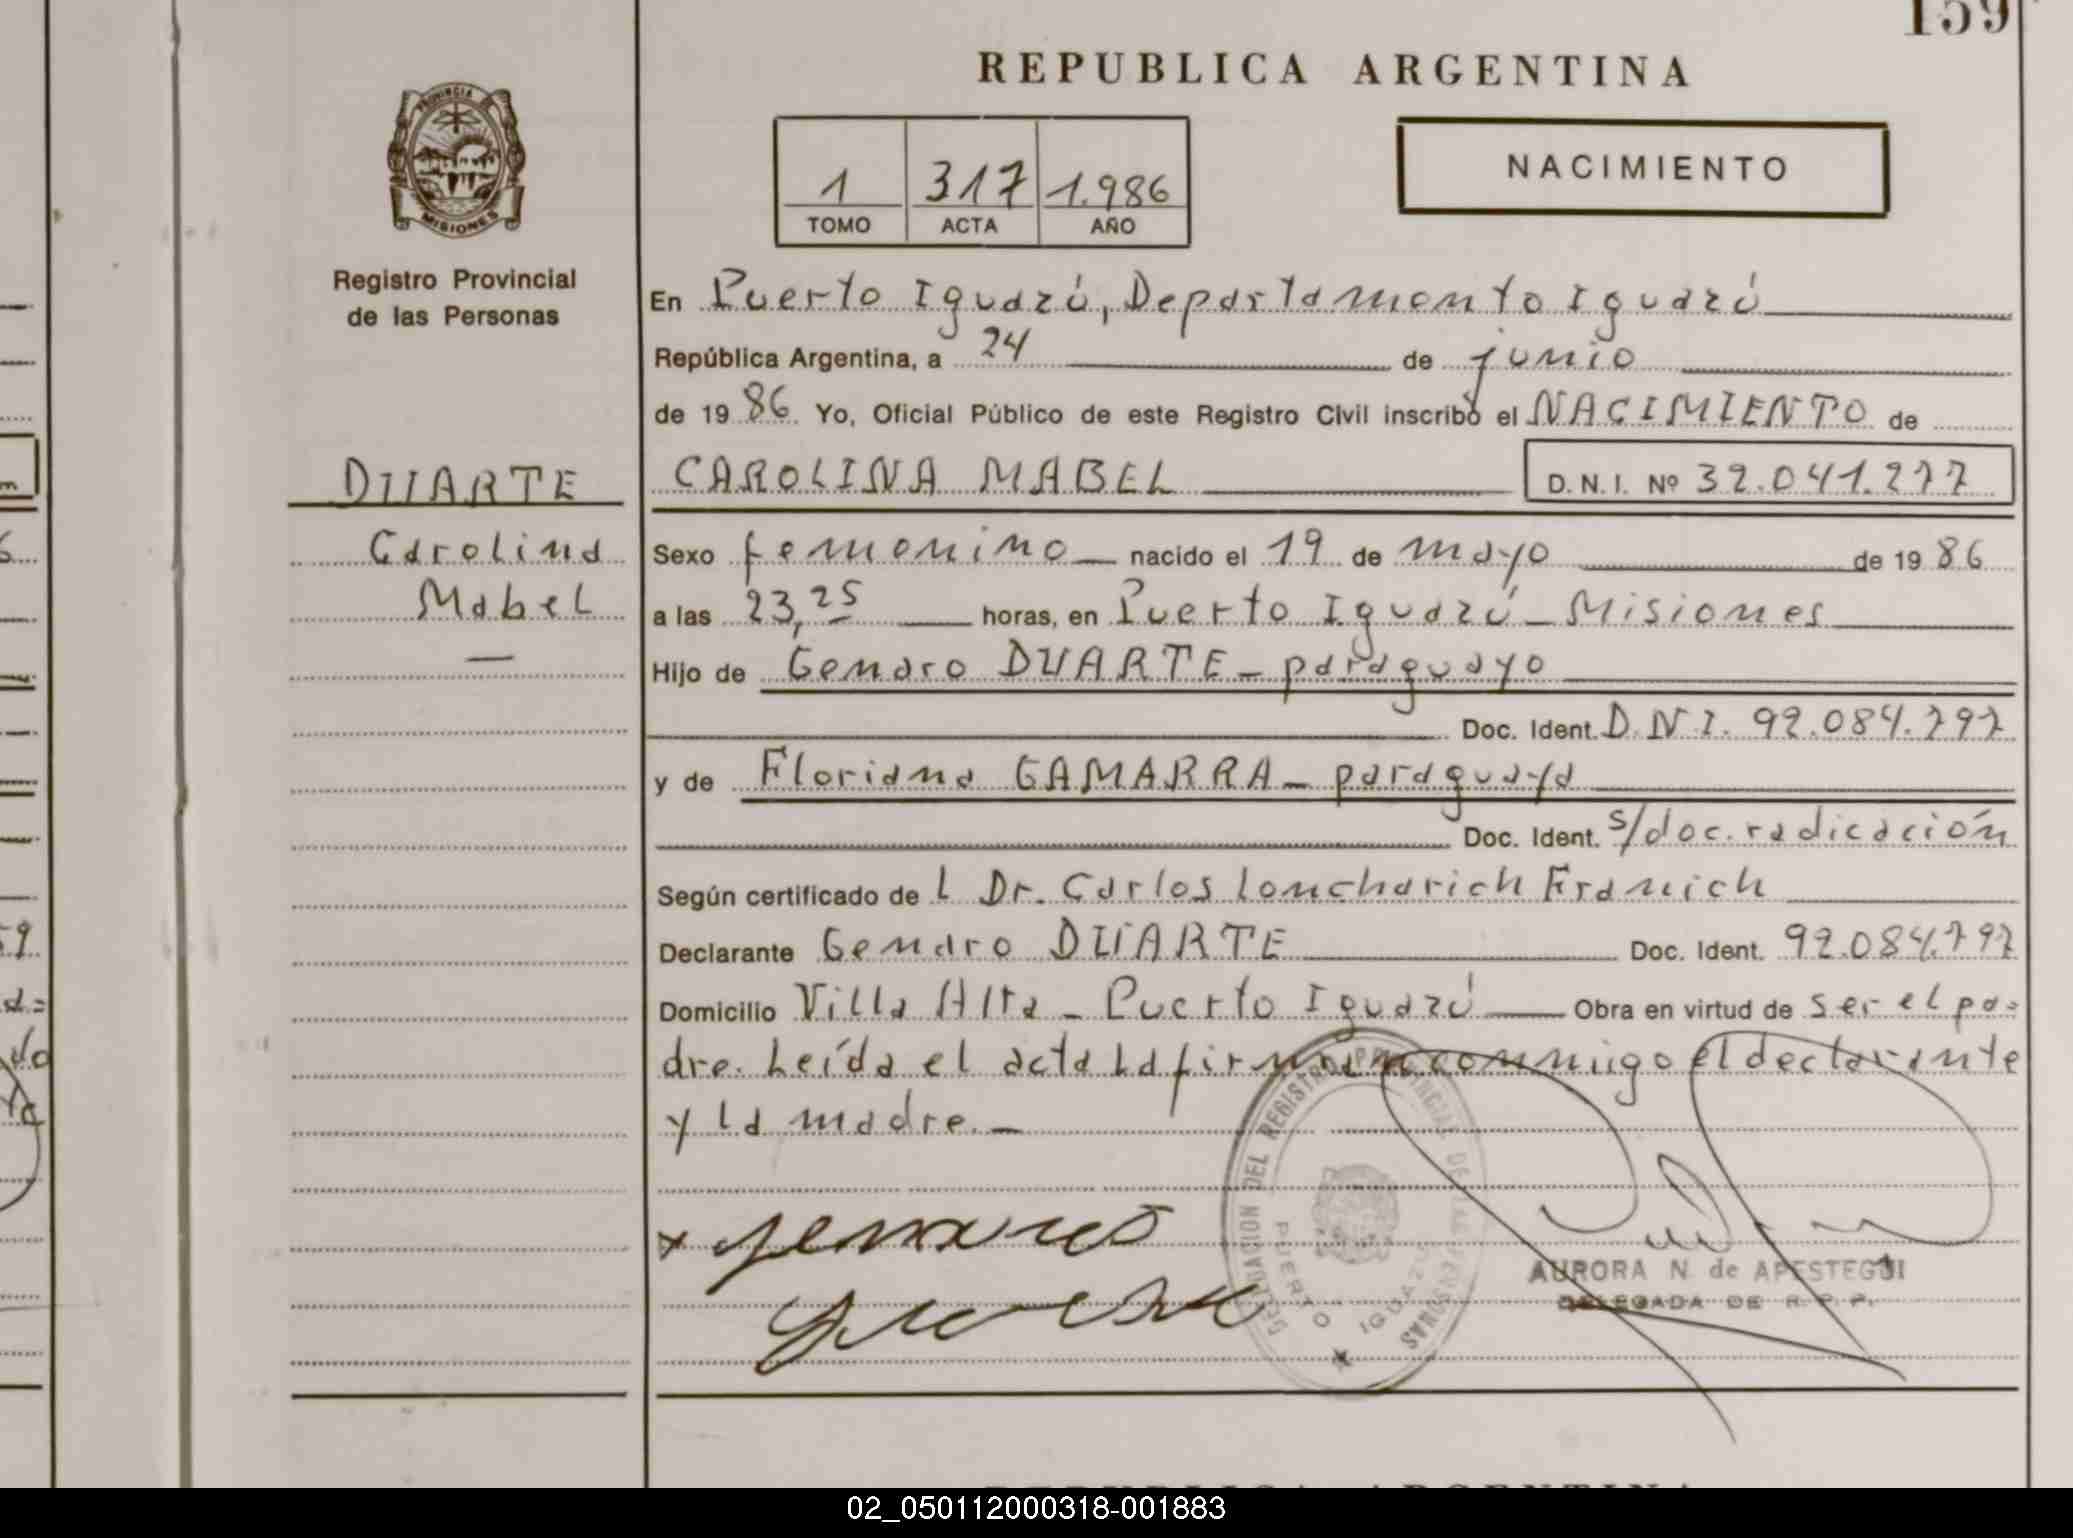 159
REPUBLICA ARGENTINA
PROVINCIA DE
MISIONES
Registro Provincial
de las Personas
1 317 1.986
TOMO ACTA AÑO
NACIMIENTO
En Puerto Iguazú, Departamento Iguazú
República Argentina, a 24 de junio
de 1986. Yo, Oficial Público de este Registro Civil inscribo el NACIMIENTO de
DUARTE
CAROLINA MABEL D.N.I. Nº 32.041.277
Carolina
Mabel
Sexo femenino nacido el 19 de mayo de 1986
a las 23,25 horas, en Puerto Iguazú - Misiones
Hijo de Genaro DUARTE - paraguayo
Doc. Ident. D.N.I. 92.084.797
y de Floriana GAMARRA - paraguaya
Doc. Ident. s/doc. radicación
Según certificado de l Dr. Carlos Loncharich Franich
Declarante Genaro DUARTE Doc. Ident. 92.084.797
Domicilio Villa Alta - Puerto Iguazú Obra en virtud de ser el pa=
dre. Leída el acta la firman conmigo el declarante
y la madre. -
DELEGACION DEL REGISTRO PROVINCIAL DE LAS PERSONAS
PUERTO IGUAZU
x genaro
AURORA N. de APESTEGUI
DELEGADA DE R.P.P.
REPUBLICA ARGENTINA
02_050112000318-001883